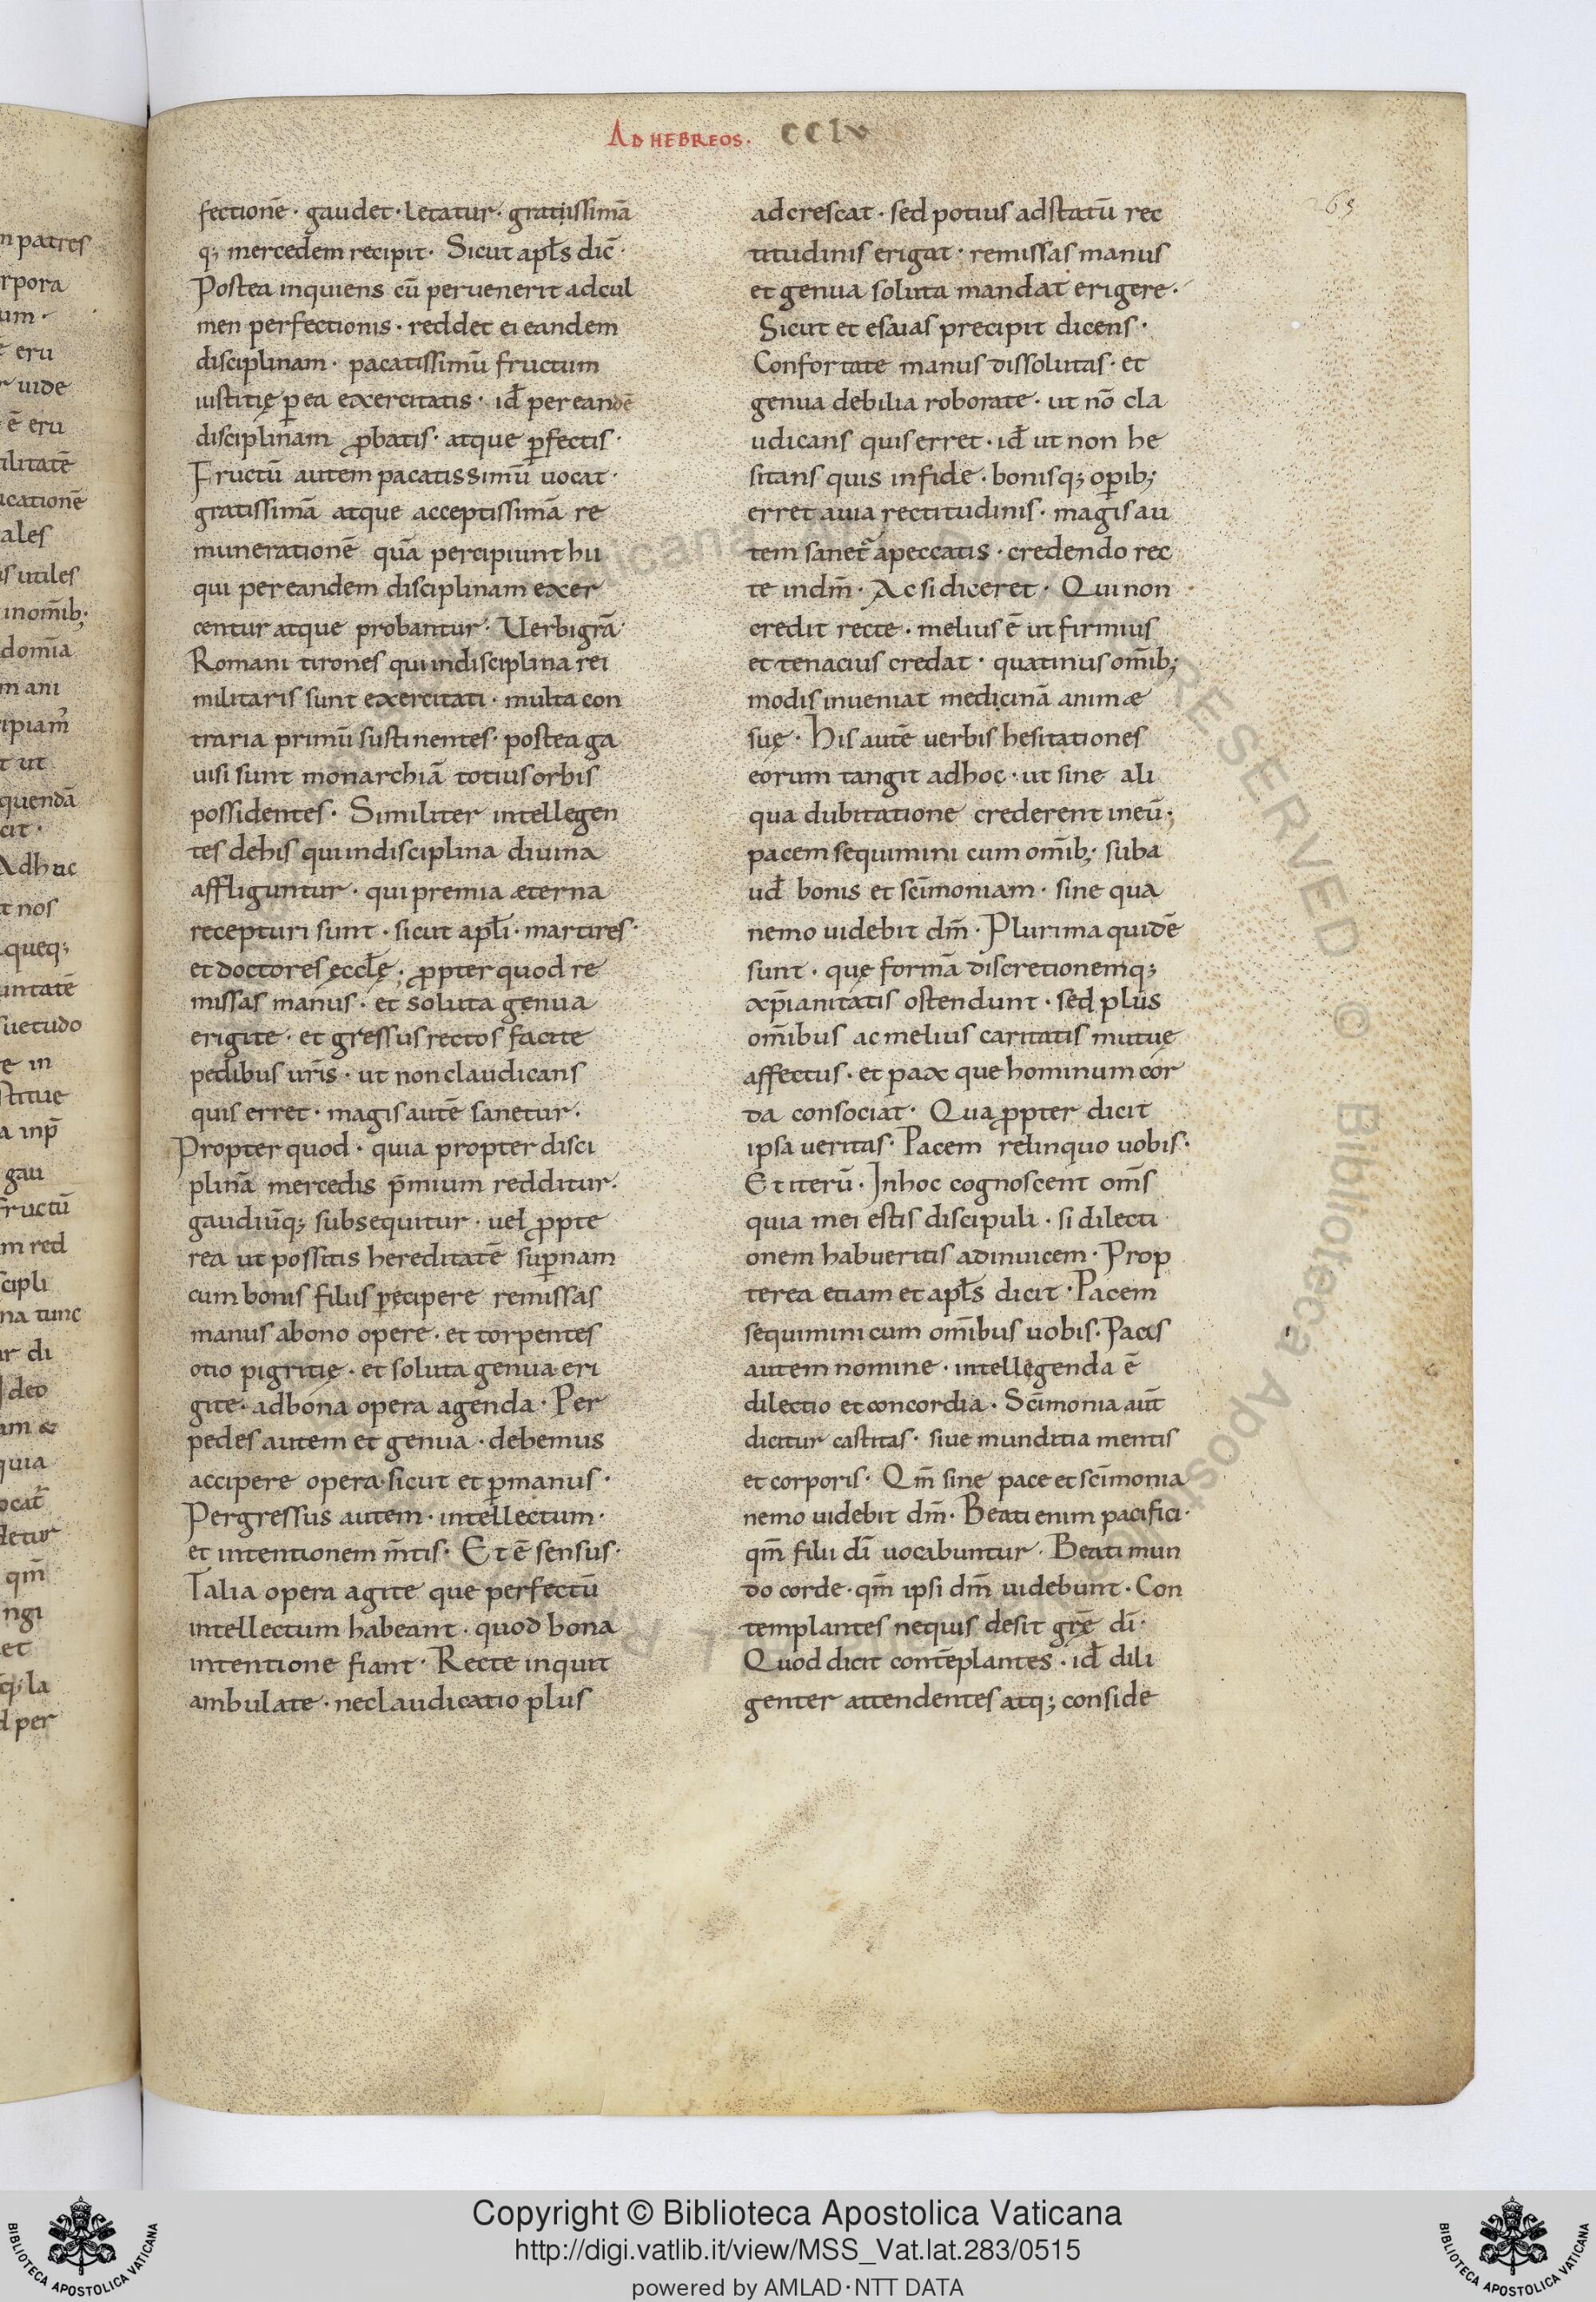 AD HEBREOS. CCLV
65
fectionē · gaudet · letatur · gratiissimā
q; mercedem recipit · Sicut apłs dic̄ ·
Postea inquiens cū peruenerit adcul
men perfectionis · reddet ei eandem
disciplinam · pacatissimū fructum
iustitię ꝑ ea exercitatis · id̄ per eandē
disciplinam ꝓbatis · atque ꝑfectis ·
Fructū autem pacatissimū uocat ·
gratissimā atque acceptissimā re
munerationē quā percipiunt hii
qui per eandem disciplinam exer
centur atque probantur · Verbigrā ·
Romani tirones qui indisciplina rei
militaris sunt exercitati · multa con
traria primū sustinentes · postea ga
uisi sunt monarchiā totius orbis
possidentes · Similiter intellegen
tes dehis qui indisciplina diuina
affliguntur · qui premia æterna
recepturi sunt · sicut apłi · martires ·
et doctores ęccłę · ꝓpter quod re
missas manus · et soluta genua
erigite · et gressus rectos facite
pedibus urīs · ut non claudicans
quis erret · magis autē sanetur ·
Propter quod · quia propter disci
plinā mercedis p̄mium redditur ·
gaudiūq; subsequitur · uel ꝓpte
rea ut possitis hereditatē suꝑnam
cum bonis filiis ꝑcipere remissas
manus abono opere · et torpentes
otio pigritię · et soluta genua eri
gite · adbona opera agenda · Per
pedes autem et genua · debemus
accipere opera sicut et ꝑ manus ·
Per gressus autem · intellectum ·
et intentionem m̄tis · Et ē sensus ·
Talia opera agite que perfectū
intellectum habeant · quod bona
intentione fiant · Recte inquit
ambulate · ne claudicatio plus
adcrescat · sed potius adstatū rec
titudinis erigat · remissas manus
et genua soluta mandat erigere ·
Sicut et esaias precipit dicens ·
Confortate manus dissolutas · et
genua debilia roborate · ut nō cla
udicans quis erret · id̄ ut non he
sitans quis infide · bonisq; oꝑib;
erret auia rectitudinis · magis au
tem sanet᷑ apeccatis · credendo rec
te indm̄ · Ac si diceret · Qui non
credit recte · melius ē ut firmius
et tenacius credat · quatinus omīb;
modis inueniat medicinā animæ
suę · His autē uerbis hesitationes
eorum tangit adhoc · ut sine ali
qua dubitatione crederent ineū ·
pacem sequimini cum omīb; · suba
ud̄ bonis et scīmoniam · sine qua
nemo uidebit dm̄ · Plurima quidē
sunt · que formā discretionemq;
xp̄ianitatis ostendunt · sed plus
omībus ac melius caritatis mutuę
affectus · et pax que hominum cor
da consociat · Quaꝓpter dicit
ipsa ueritas · Pacem relinquo uobis ·
Et iterū · Inhoc cognoscent om̄s
quia mei estis discipuli · si dilecti
onem habueritis adinuicem · Prop
terea etiam et apłs dicit · Pacem
sequimini cum omībus uobis · Pacis
autem nomine · intellegenda ē
dilectio et concordia · Scīmonia aut̄
dicitur castitas · siue munditia mentis
et corporis · Qm̄ sine pace et scīmonia
nemo uidebit dm̄ · Beati enim pacifici ·
qm̄ filii dī uocabuntur · Beati mun
do corde · qm̄ ipsi dm̄ uidebunt · Con
templantes nequis desit grę̄ dī ·
Quod dicit contēplantes · id̄ dili
genter attendentes atq; conside
Copyright © Biblioteca Apostolica Vaticana
http://digi.vatlib.it/view/MSS_Vat.lat.283/0515
powered by AMLAD·NTT DATA